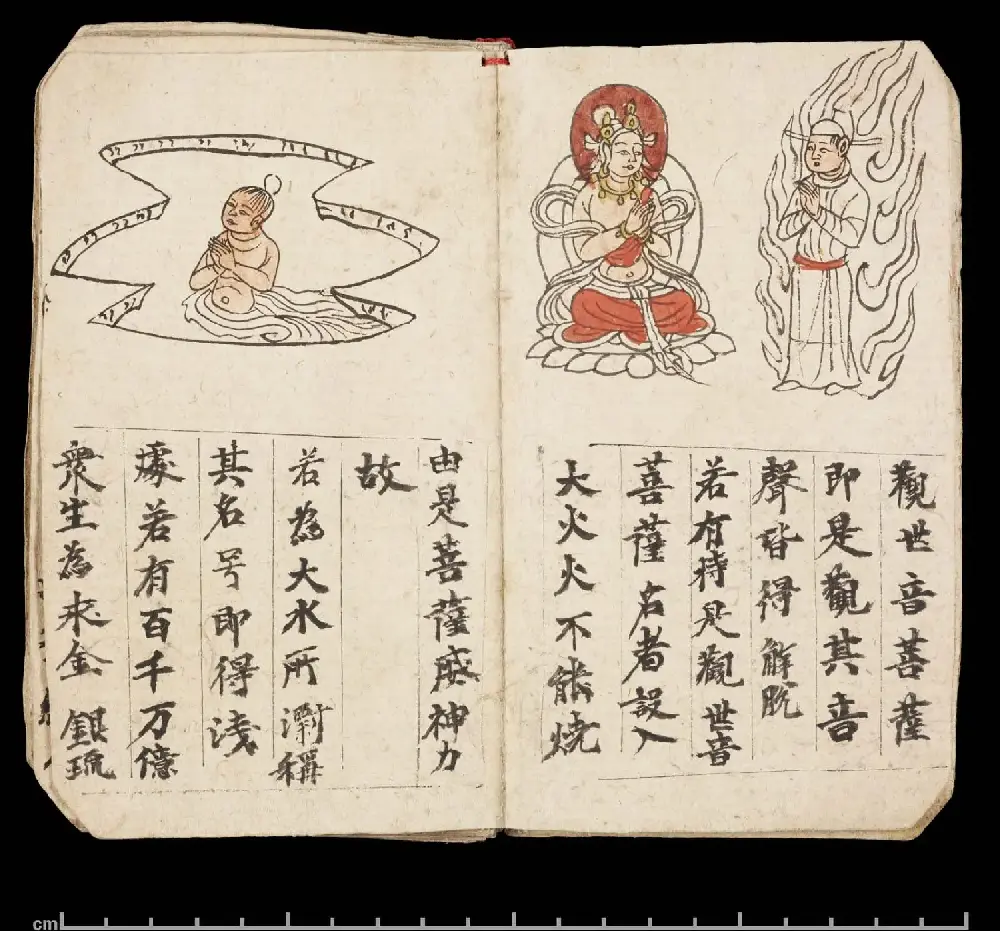 觀世音菩薩
即是觀其音
聲皆得解脫
若有持是觀世音
菩薩名者設入
大火火不能燒
由是菩薩威神力
故
若為大水所漂稱
其名号即得淺
處若有百千万億
衆生為求金銀琉
cm